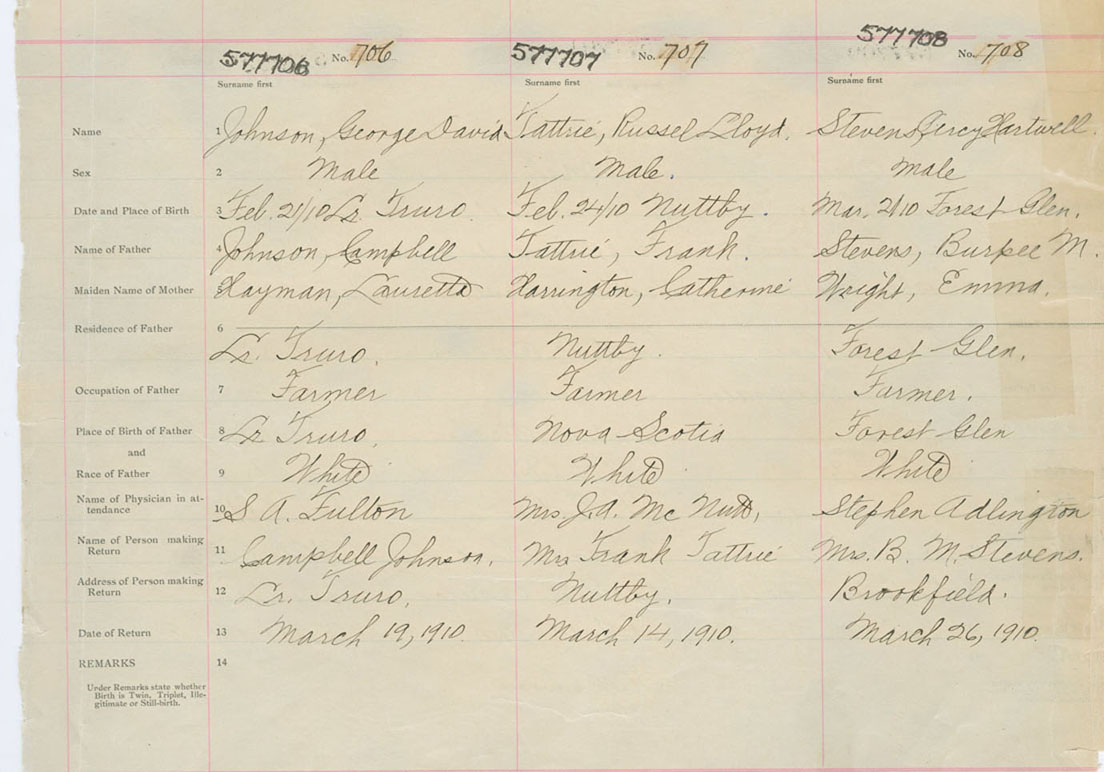 577706 No. 706 577707 No. 707 577708 No. 708
Surname first Surname first Surname first
Name 1 Johnson, George David Tattrie, Russel Lloyd. Stevens, Percy Hartwell.
Sex 2 Male Male. Male
Date and Place of Birth 3 Feb. 21/10 Lr. Truro. Feb. 24/10 Nuttby. Mar. 2/10 Forest Glen.
Name of Father 4 Johnson, Campbell Tattrie, Frank. Stevens, Burpee M.
Maiden Name of Mother 5 Hayman, Lauretta Harrington, Catherine Wright, Emma.
Residence of Father 6
Lr. Truro. Nuttby. Forest Glen.
Occupation of Father 7 Farmer Farmer Farmer.
Place of Birth of Father 8 Lr. Truro. Nova Scotia Forest Glen
and
Race of Father 9 White White White
Name of Physician in at-
tendance 10 S A. Fulton Mrs J. A. Mc Nutt, Stephen Adlington
Name of Person making
Return 11 Campbell Johnson. Mrs Frank Tattrie Mrs. B. M. Stevens.
Address of Person making
Return 12 Lr. Truro. Nuttby. Brookfield.
Date of Return 13 March 19, 1910. March 14, 1910. March 26, 1910.
REMARKS 14
Under Remarks state whether
Birth is Twin, Triplet, Ille-
gitimate or Still-birth.